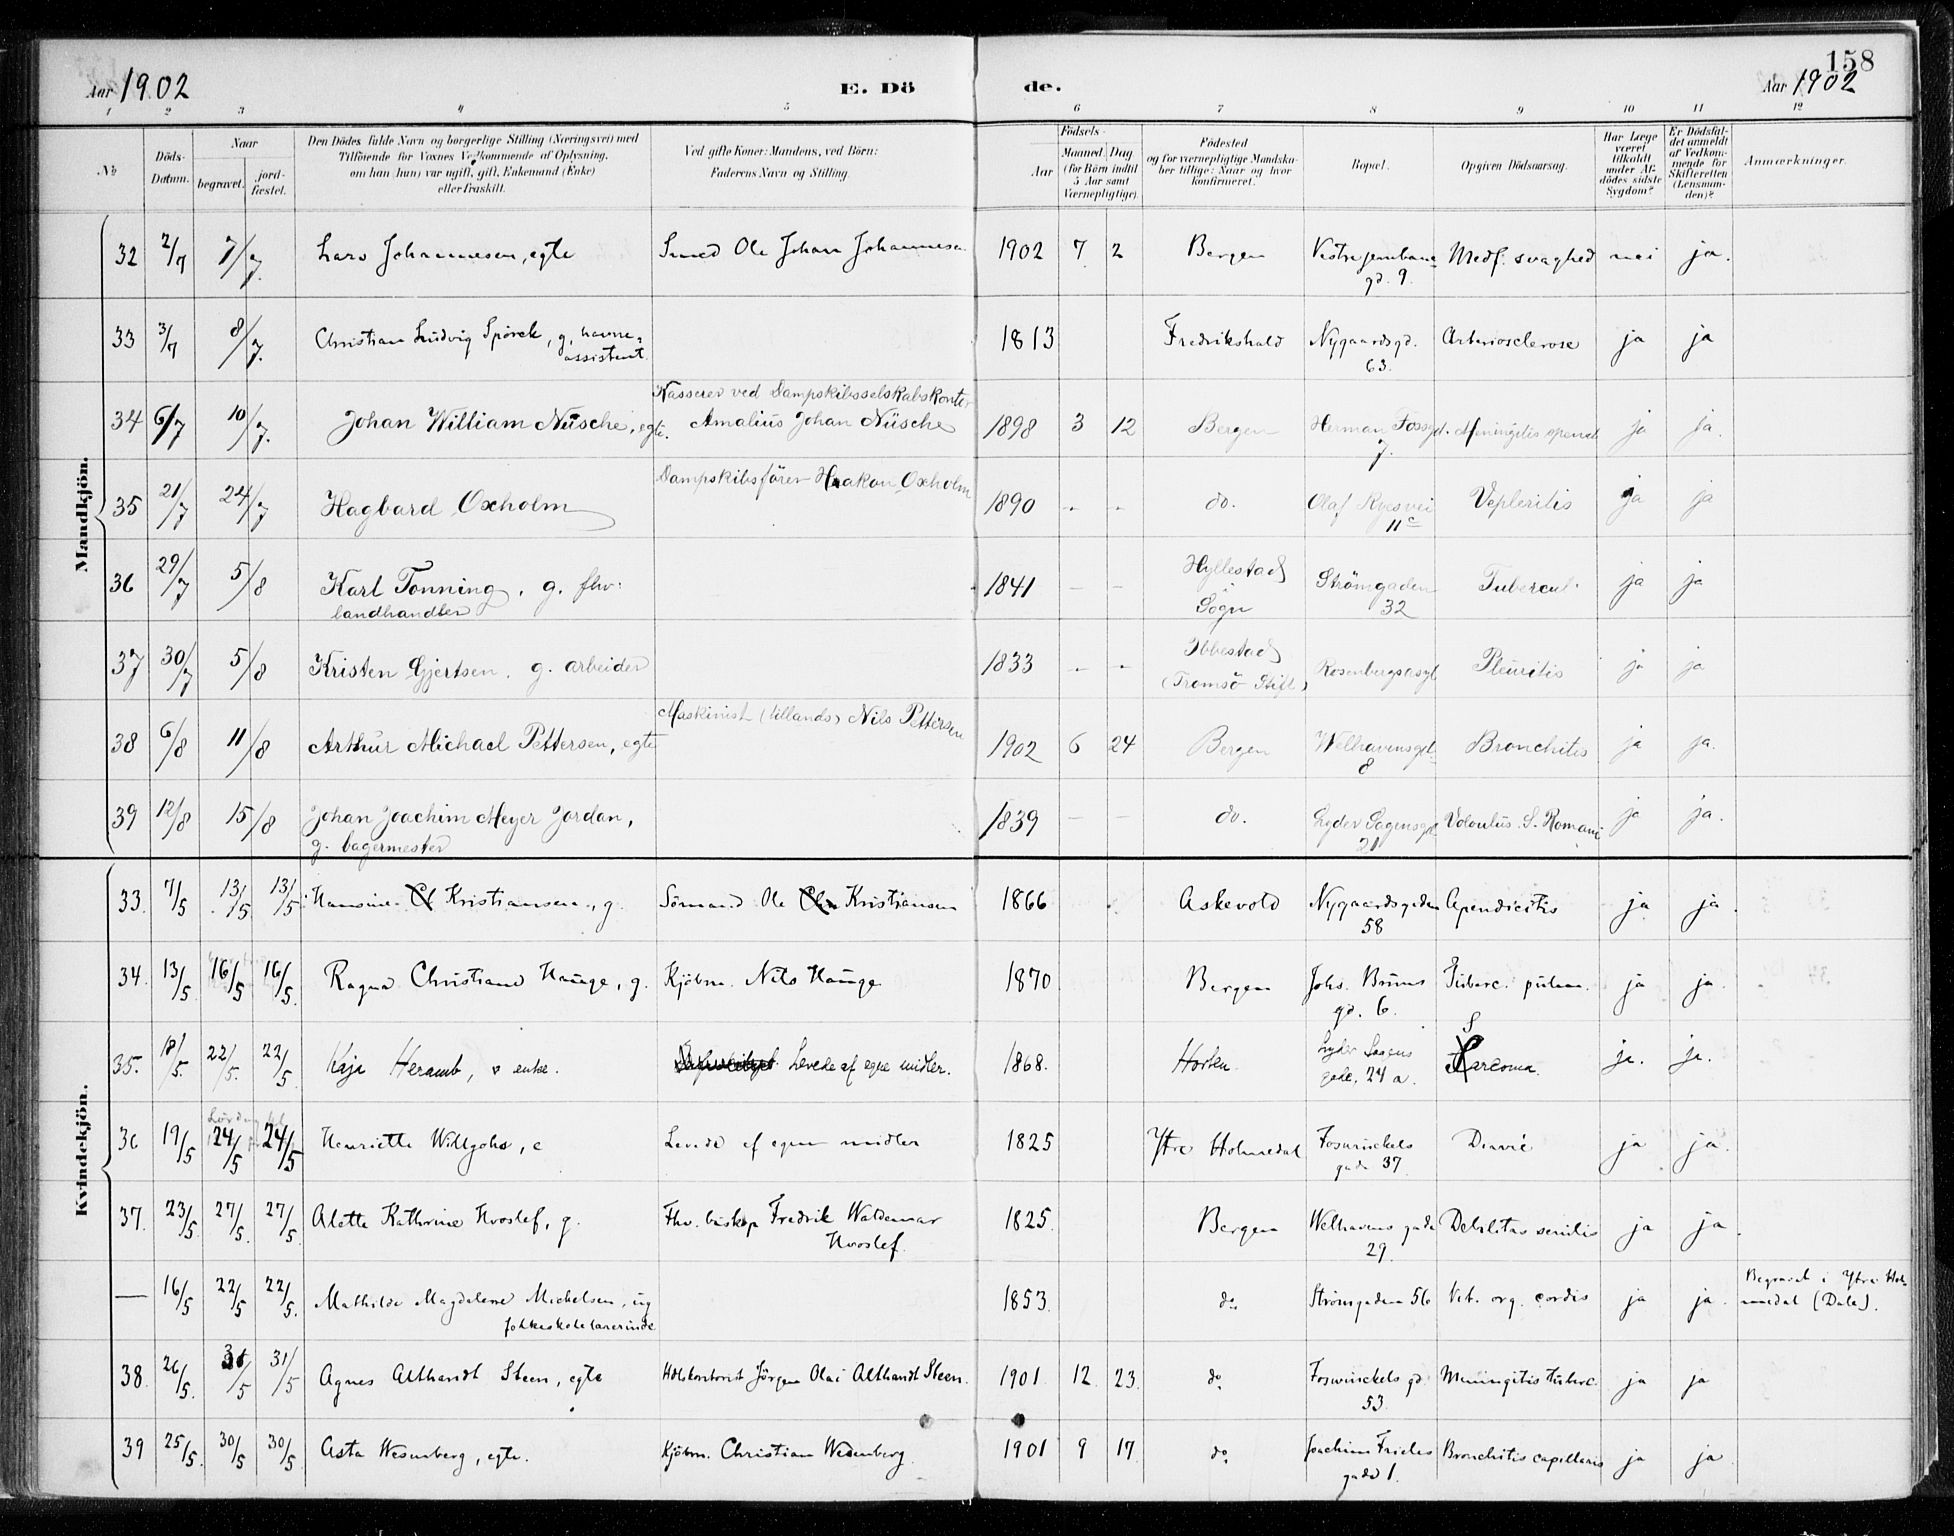 158
Aar 1902 E. Dö de. Aar 1902
1 2 3 4 5 6 7 8 9 10 11 12
No
Döds-Datum.
Naar
begravet.
jord-fæstet.
Den Dödes fulde Navn og borgerlige Stilling (Næringsvei) med
Tilföiende for Voxnes Vedkommende af Oplysning,
om han (hun) var ugift, gift, Enkemand (Enke)
eller fraskilt.
Ved gifte Koner: Mandens, ved Börn:
Faderens Navn og Stilling.
Födsels-
Aar
Maaned. Dag
(for Börn indtil
5 Aar samt
Værnepligtige).
Födested
og for værnepligtige Mandska-
ber tillige: Naar og hvor
konfirmeret.
Bopæl.
Opgiven Dödsaarsag.
Har Læge
været
tilkaldt
under Af-
dödes sidste
Sygdom?
Er Dödsfal-
det anmeldt
af Vedkom-
mende for
Skifteretten
(Lensman-
den)?
Anmærkninger.
Mandkjön.
32 2/7 7/7. Lars Johannesen, egte Smed Ole Johan Johannesen 1902 7 2 Bergen Vestre jernbane gd. 9. Medf. svaghed nei ja.
33 3/7 8/7. Christian Ludvig Spörck, g. havne-
assistent. 1813 Fredrikshald Nygaardsgd. 63. Arteriosclerose ja ja
34 6/7 10/7. Johan William Nüsche, egte. Kasserer ved Dampskibsselskabskontor
Amalius Johan Nüsche 1898 3 12 Bergen Herman Fossgd. 7. Meningitis ja ja.
35 21/7 24/7 Hagbard Oxholm Dampskibsförer Haakon Oxholm 1890 - - do. Olaf Ryesvei 11c ja ja
36 29/7 5/8 Karl Tonning, g. fhv:
landhandler 1841 - - Hyllestad Sogn Strömgaden 32 Tubercul. ja ja
37 30/7 5/8 Kristen Gjertsen. g. arbeider 1833 - - Ibbestad (Tromsö Stift) Rosenbergsasyl Pleuritis ja ja
38 6/8 11/8 Arthur Michael Pettersen, egte Maskinist (tillands) Nils Pettersen 1902 6 24 Bergen Welhavensgd. 8 Bronchitis ja ja.
39 12/8 15/8 Johan Joachim Meyer Jordan,
g. bagermester 1839 - - do. Lyder Sagensgd. 21 Volvulus S. Romani ja ja.
Kvindekjön.
33. 7/5 13/5 13/5 Hansine Kristiansen, g. Sömand Ole Kristiansen 1866 Askevold Nygaardsgaden 58 Apendicitis ja ja.
34. 13/5. 16/5 16/5. Ragna Christiane Hauge, g. Kjöbm. Nils Hauge 1870 Bergen Johs. Bruns gd. 6. Tuberc. pulm. ja ja.
35. 18/5. 22/5. 22/5. Kaja Heramb, enke. Levede af egne midler. 1868. Horten Lyder Sagens gade, 24 a. Sarcoma. ja. ja.
36 19/5 24/5 24/5 Henriette Willgohs, e Levede af egne midler 1825 Ytre Holmedal Foswinckels gade 37. ja ja.
37. 23/5. 27/5. 27/5. Alette Kathrine Hvoslef, g. Fhv. biskop Fredrik Waldemar
Hvoslef. 1825. Bergen Welhavens gade 29. Debilitas senilis ja ja.
— 16/5 22/5 22/5. Mathilde Magdalene Michelsen, ug
folkeskolelærerinde 1853. do. Strömgaden 56 Vit. org. cordis ja ja. Begravet i Ytre Hol-
medal (Dale).
38. 26/5. 31/5 31/5 Agnes Althandt Steen, egte Jörgen Olai Althandt Steen. 1901. 12. 23. do Foswinckels gd. 53. Meningitis tuberc. ja ja
39 25/5. 30/5 30/5 Asta Wesenberg, egte. Kjöbm. Christian Wesenberg. 1901 9 17. do Joachim Frieles gade 1. Bronchitis capillaris ja ja